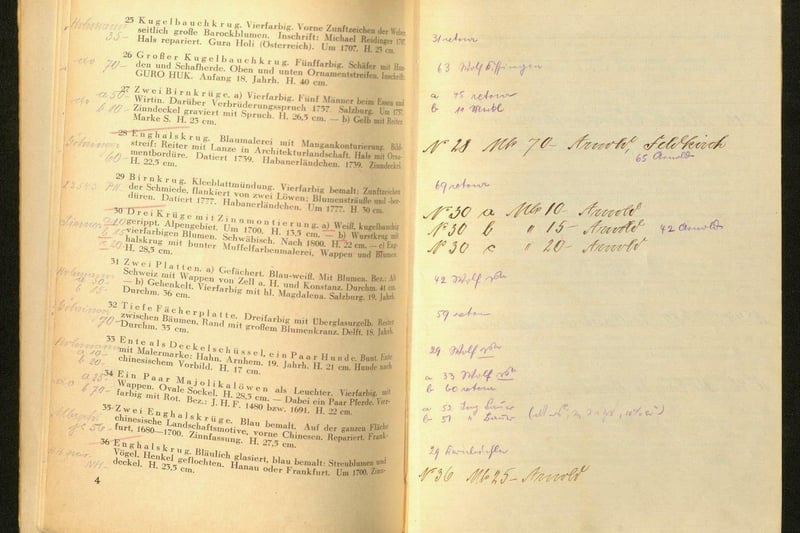 25 Kugelbauchkrug. Vierfarbig. Vorne Zunftzeichen der Weber,
seitlich große Barockblumen. Inschrift: Michael Reidinger 1707.
Hals repariert. Gura Holi (Österreich). Um 1707. H. 25 cm.
35-
26 Großer Kugelbauchkrug. Fünffarbig. Schäfer mit Hun-
den und Schafherde. Oben und unten Ornamentstreifen. Inschrift:
GURO HUK. Anfang 18. Jahrh. H. 40 cm.
70-
27 Zwei Birnkrüge. a) Vierfarbig. Fünf Männer beim Essen und
Wirtin. Darüber Verbrüderungsspruch 1757. Salzburg. Um 1757.
Zinndeckel graviert mit Spruch. H. 26,5 cm. — b) Gelb mit Reiter.
Marke S. H. 23 cm
a 50-
b 10-
28 Enghalskrug. Blaumalerei mit Mangankonturierung. Bild-
streif: Reiter mit Lanze in Architekturlandschaft. Hals mit Orna-
mentbordüre. Datiert 1739. Habanerländchen. 1739. Zinndeckel.
H. 22,5 cm.
60-
29 Birnkrug. Kleeblattmündung. Vierfarbig bemalt: Zunftzeichen
der Schmiede, flankiert von zwei Löwen; Blumensträuße und -bor-
düren. Datiert 1777. Habanerländchen. Um 1777. H. 30 cm.
30 Drei Krüge mit Zinnmontierung. a) Weiß, kugelbauchig
gerippt. Alpengebiet. Um 1700. H. 13,5 cm. — b) Wurstkrug mit
vierfarbigen Blumen. Schwäbisch. Nach 1800. H. 22 cm. — c) Eng-
halskrug mit bunter Muffelfarbenmalerei, Wappen und Blumen.
H. 28,5 cm.
a 10
b 15
c 20
31 Zwei Platten. a) Gefächert. Blau-weiß. Mit Blumen. Bez.: AB
Schweiz mit Wappen von Zell a. H. und Konstanz. Durchm. 41 cm.
— b) Gehenkelt. Vierfarbig mit hl. Magdalena. Salzburg. 19. Jahrh.
Durchm. 36 cm.
a 30-
b 15-
32 Tiefe Fächerplatte. Dreifarbig mit Überglasurgelb. Reiter
zwischen Bäumen. Rand mit großem Blumenkranz. Delft. 18. Jahrh.
Durchm. 33 cm.
70-
33 Ente als Deckelschüssel, ein Paar Hunde. Bunt. Ente
mit Malermarke: Hahn. Arnhem. 19. Jahrh. H. 21 cm. Hunde nach
chinesischem Vorbild. H. 17 cm.
a 10-
b 20-
34 Ein Paar Majolikalöwen als Leuchter. Vierfarbig, mit
Wappen. Ovale Sockel. H. 28,5 cm. — Dabei ein Paar Pferde. Vier-
farbig mit Rot. Bez.: J. H. F. 1480 bzw. 1691. H. 22 cm.
a 25-
b 70-
35 Zwei Enghalskrüge. Blau bemalt. Auf der ganzen Fläche
chinesische Landschaftsmotive, vorne Chinesen. Repariert. Frank-
furt, 1680—1700. Zinnfassung. H. 27,5 cm.
36 Enghalskrug. Bläulich glasiert, blau bemalt: Streublumen und
Vögel. Henkel geflochten. Hanau oder Frankfurt. Um 1700. Zinn-
deckel. H. 23,5 cm.
4
31 retour
63 Wolf
a 45 retour
b 11
N° 28 Mk 70- Arnold, Feldkirch
65 Arnold
69 retour
N° 30 a Mk 10- Arnold
N° 30 b " 15- Arnold 42 Arnold
N° 30 c " 20- Arnold
42 Wolf
59 retour
29 Wolf
a 33 Wolf
b 60 retour
a 52
b 51
29
N° 36 Mk 25- Arnold